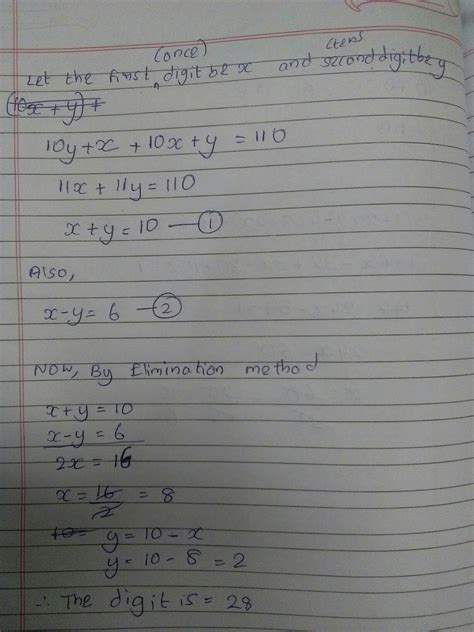 (once)
(tens
Let the first digit be x and second digit be y
(10x + y) +
10y + x + 10x + y = 110
11x + 11y = 110
x + y = 10 — ①
Also,
x - y = 6 — ②
NOW, By Elimination method
x + y = 10
x - y = 6
2x = 16
x = 16/2 = 8
10 = y = 10 - x
y = 10 - 8 = 2
∴ The digit is = 28